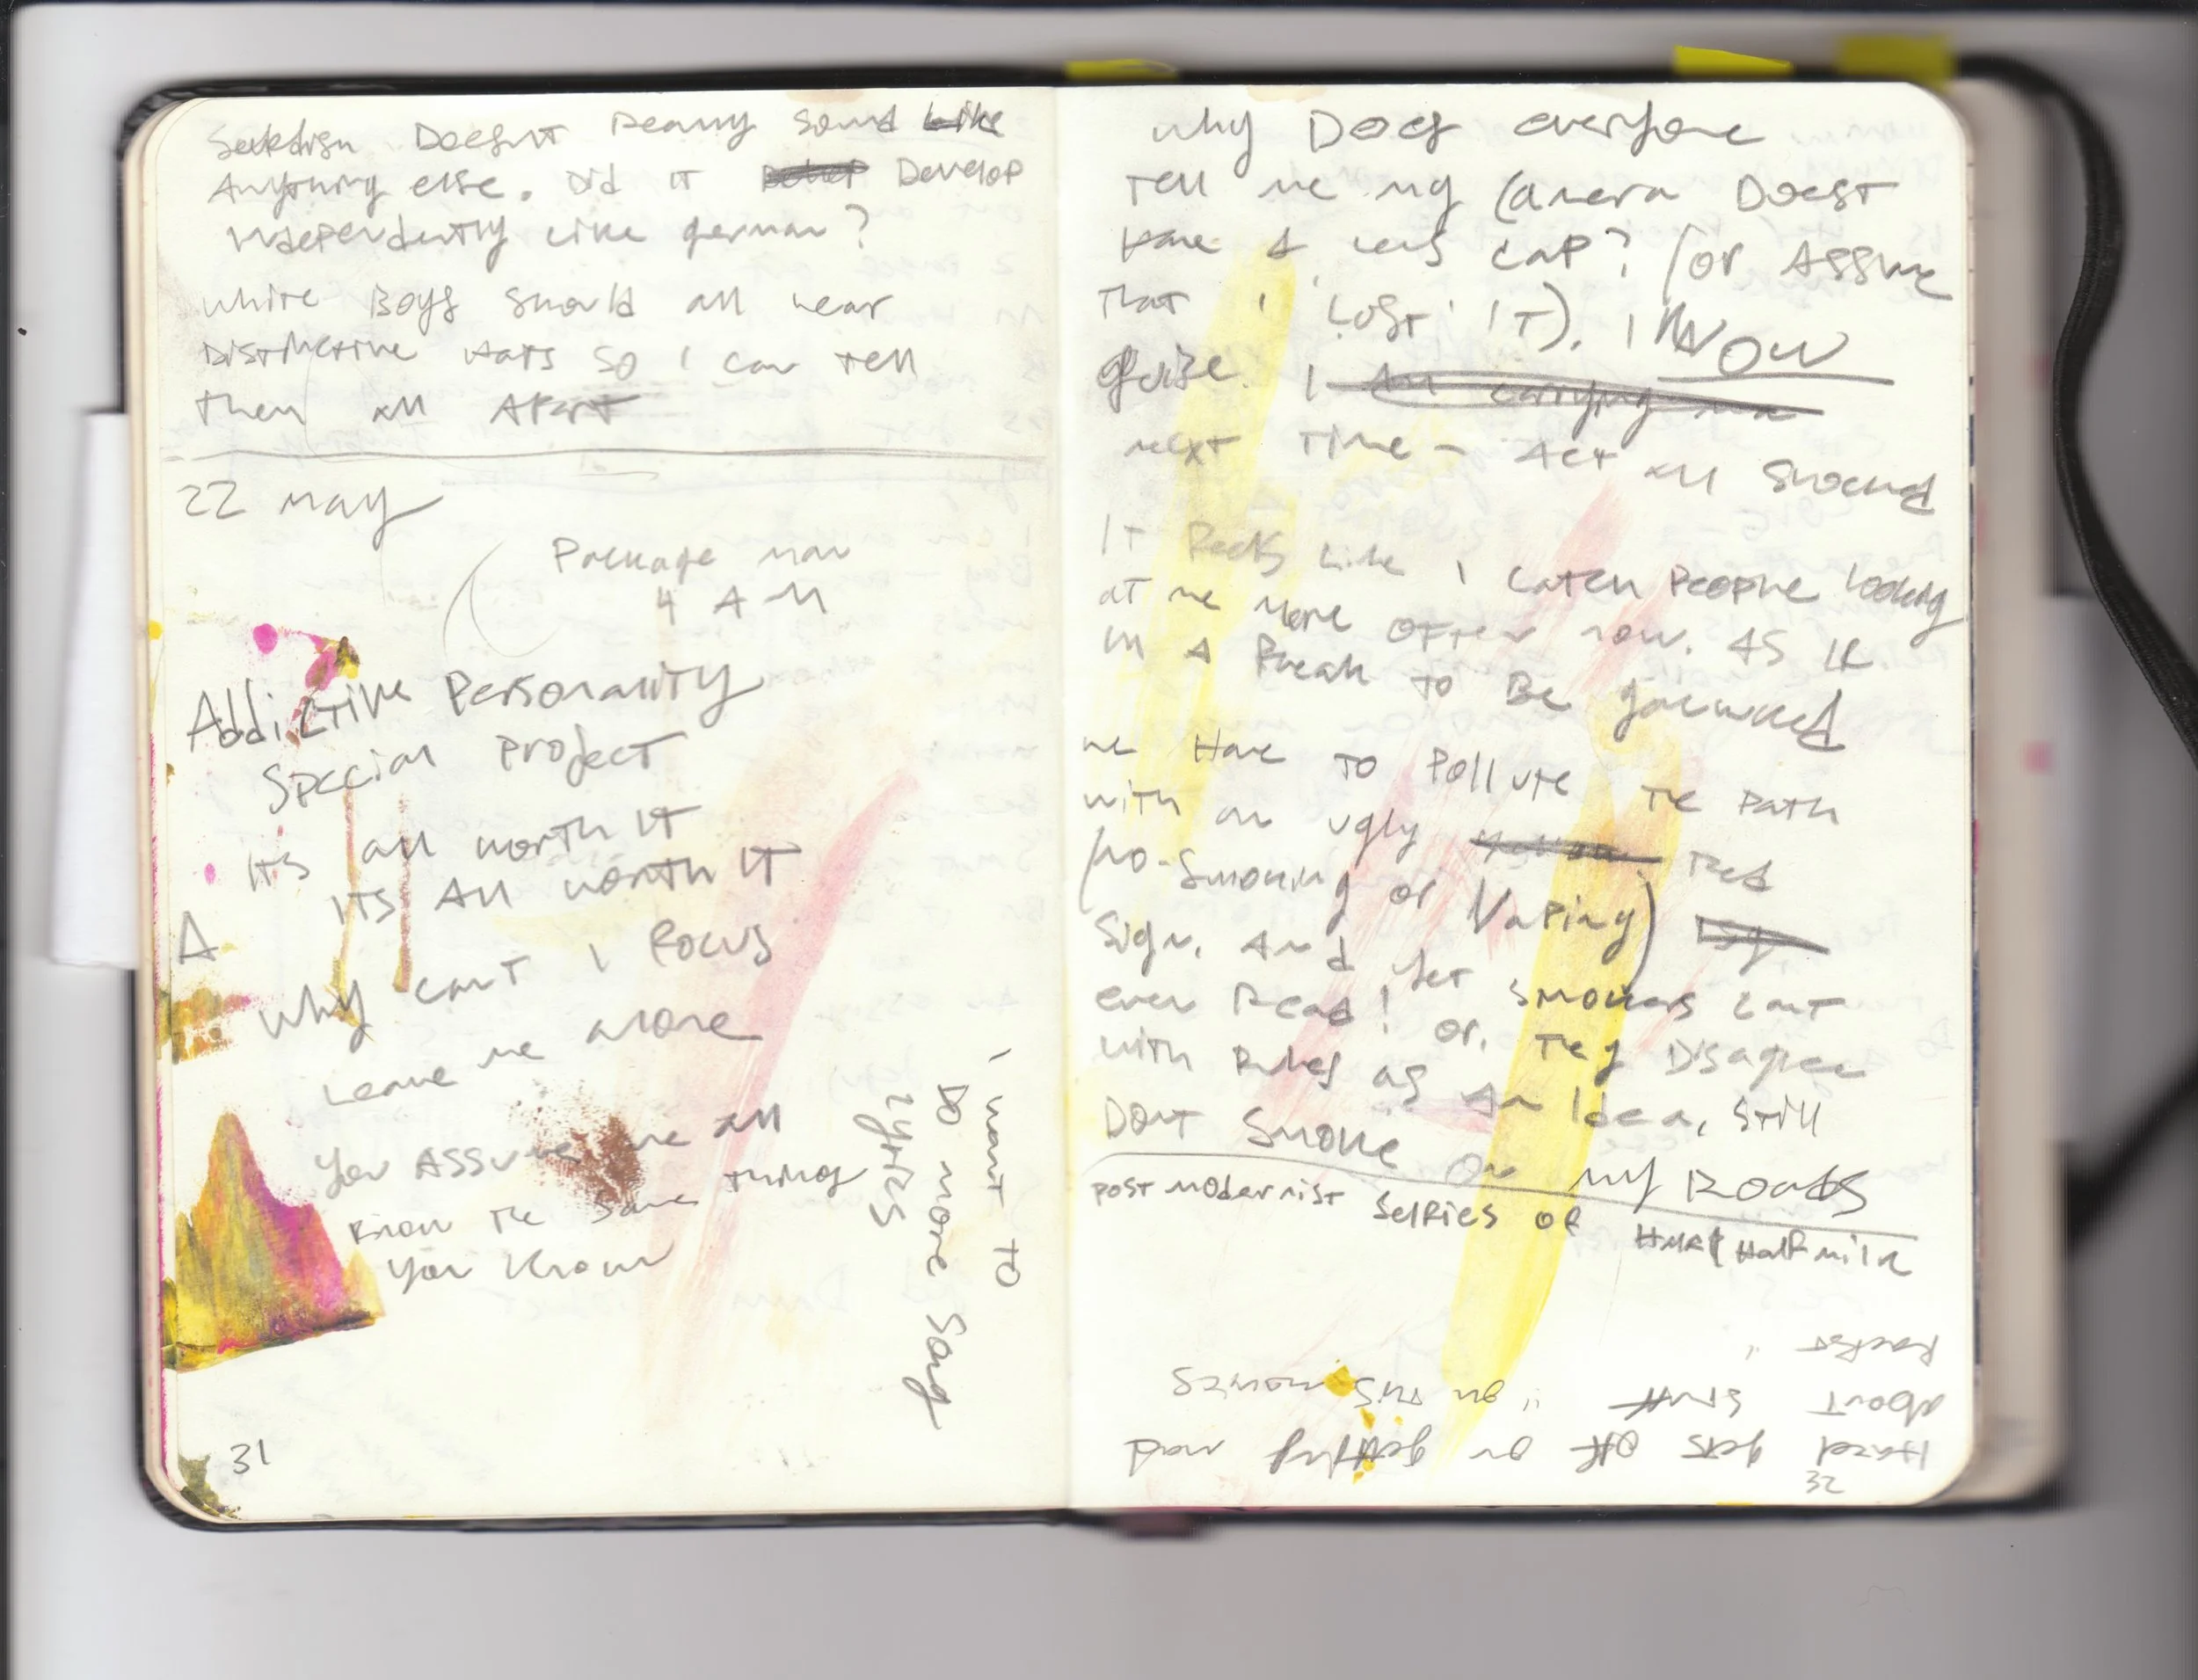 Swedish Doesnt really sound like
Anything else. Did it Develop
independently like german?
white Boys should all wear
Distinctive Hats so I can tell
them all Apart
22 may
Package man
4 AM
Addictive Personality
Special project
its all worth it
its All worth it
A
why cant I focus
Leave me alone
You Assume we all
know the same things
you know
I want to
Do more song
lyrics
31
why Does everyone
Tell me my camera Doest
have a lens cap? (or Assume
that I Lost it). I KNOW
guise. I am carrying
next time - Act all shocked
It feels like I catch people looking
at me more often now. As if
im a freak to be gawked
we Have to pollute the path
with an ugly red
(no-smoking or Vaping)
sign. And yet smokers cant
even Read! or, they Disagree
with Rules as An Idea, still
Dont smoke on my Roads
post modernist selfies of Half Half milk
Hazel gets off on getting mad
about stuff "on this
Racist"
32